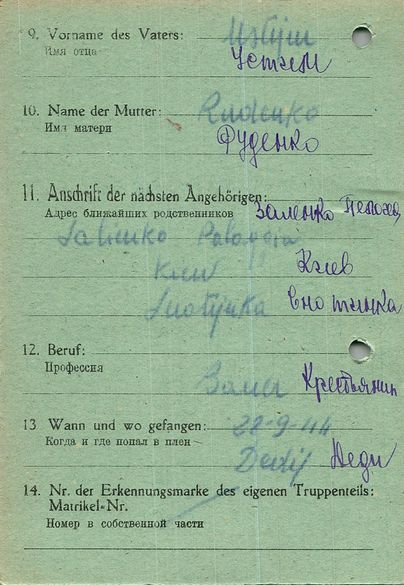 9. Vorname des Vaters: Ustijm
Имя отца Устим
10. Name der Mutter: Rudenko
Имя матери Руденко
11. Anschrift der nächsten Angehörigen:
Адрес ближайших родственников
Salienko Palaggia
Киев
12. Beruf:
Профессия
Bauer Крестьянин
13 Wann und wo gefangen: 28-9-44
Когда и где попал в плен
14. Nr. der Erkennungsmarke des eigenen Truppenteils:
Matrikel-Nr.
Номер в собственной части